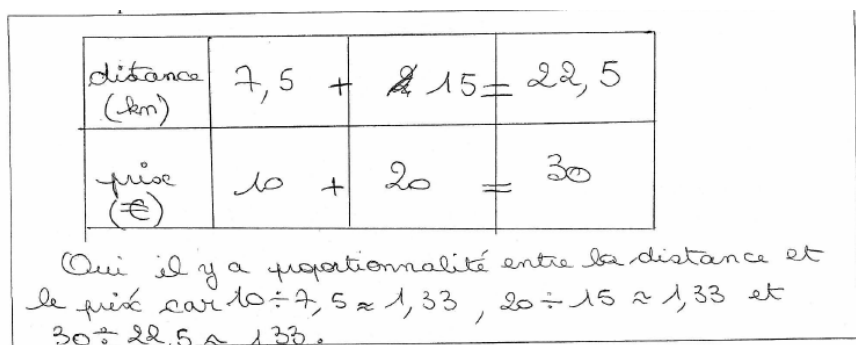 distance 7,5 + 15 = 22,5
(km)
prix 10 + 20 = 30
(€)
Oui il y a proportionnalité entre la distance et
le prix car 10÷7,5 ≈ 1,33 , 20÷15 ≈ 1,33 et
30÷22,5 ≈ 1,33.